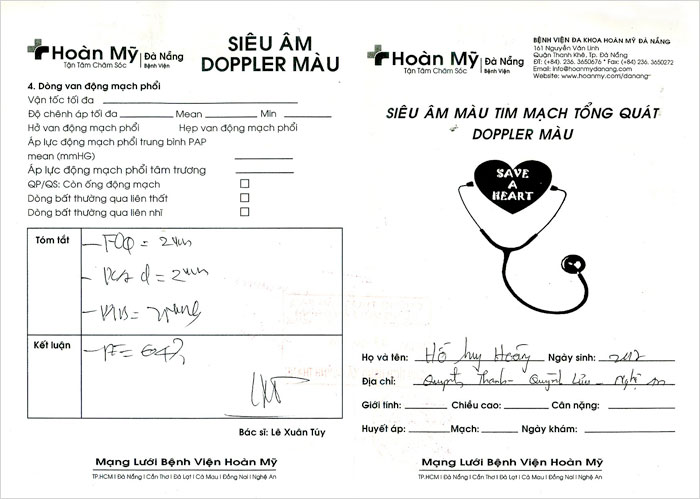 Hoàn Mỹ Đà Nẵng
Tận Tâm Chăm Sóc Bệnh Viện
SIÊU ÂM
DOPPLER MÀU
4. Dòng van động mạch phổi
Vận tốc tối đa
Độ chênh áp tối đa Mean Min
Hở van động mạch phổi Hẹp van động mạch phổi
Áp lực động mạch phổi trung bình PAP
mean (mmHG)
Áp lực động mạch phổi tâm trương
QP/QS: Còn ống động mạch
Dòng bất thường qua liên thất
Dòng bất thường qua liên nhĩ
Tóm tắt
- FOQ = 2mm
- PCA d = 2mm
Kết luận
- EF = 64%
Bác sĩ: Lê Xuân Túy
Mạng Lưới Bệnh Viện Hoàn Mỹ
TP.HCM I Đà Nẵng I Cần Thơ I Đà Lạt I Cà Mau I Đồng Nai I Nghệ An
Hoàn Mỹ Đà Nẵng
Tận Tâm Chăm Sóc Bệnh Viện
BỆNH VIỆN ĐA KHOA HOÀN MỸ ĐÀ NẴNG
161 Nguyễn Văn Linh
Quận Thanh Khê, Tp. Đà Nẵng
ĐT: (+84). 236. 3650676 * Fax: (+84) 236. 3650272
Email: info@hoanmydanang.com
Website: www.hoanmy.com/danang
SIÊU ÂM MÀU TIM MẠCH TỔNG QUÁT
DOPPLER MÀU
SAVE
A
HEART
Họ và tên: Hồ Huy Hoàng Ngày sinh: 2012
Địa chỉ: Quỳnh Thanh - Quỳnh Lưu - Nghệ An
Giới tính: Chiều cao: Cân nặng:
Huyết áp: Mạch: Ngày khám:
Mạng Lưới Bệnh Viện Hoàn Mỹ
TP.HCM I Đà Nẵng I Cần Thơ I Đà Lạt I Cà Mau I Đồng Nai I Nghệ An